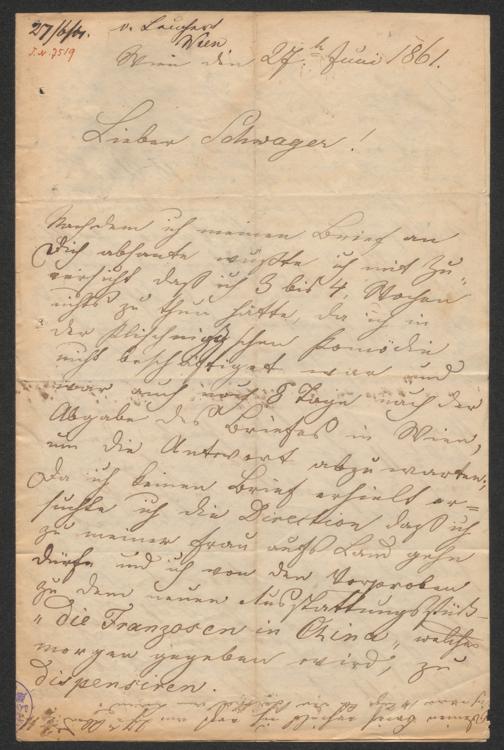 27/6/61.
v. Leuchert
Wien
I.N. 7519
Wien den 27.t Juni 1861.
Lieber Schwager!
Nachdem ich meinen Brief an
Dich absante wußte ich mit Zu„
versicht daß ich 3 bis 4 Wochen
nichts zu thun hätte, da ich in
der Klischnigg'schen Komödie
nicht beschäftiget war und
war auch noch 8 Tage nach der
Abgabe des Briefes in Wien,
um die Antwort abzuwarten;
Da ich keinen Brief erhielt er=
suchte ich die Direction daß ich
zu meiner Frau aufs Land gehn
dürfe und ich von den Vorproben
zu dem neuen Ausstattungsstück
„die Franzosen in China„ welches
morgen gegeben wird, zu
dispensiren.